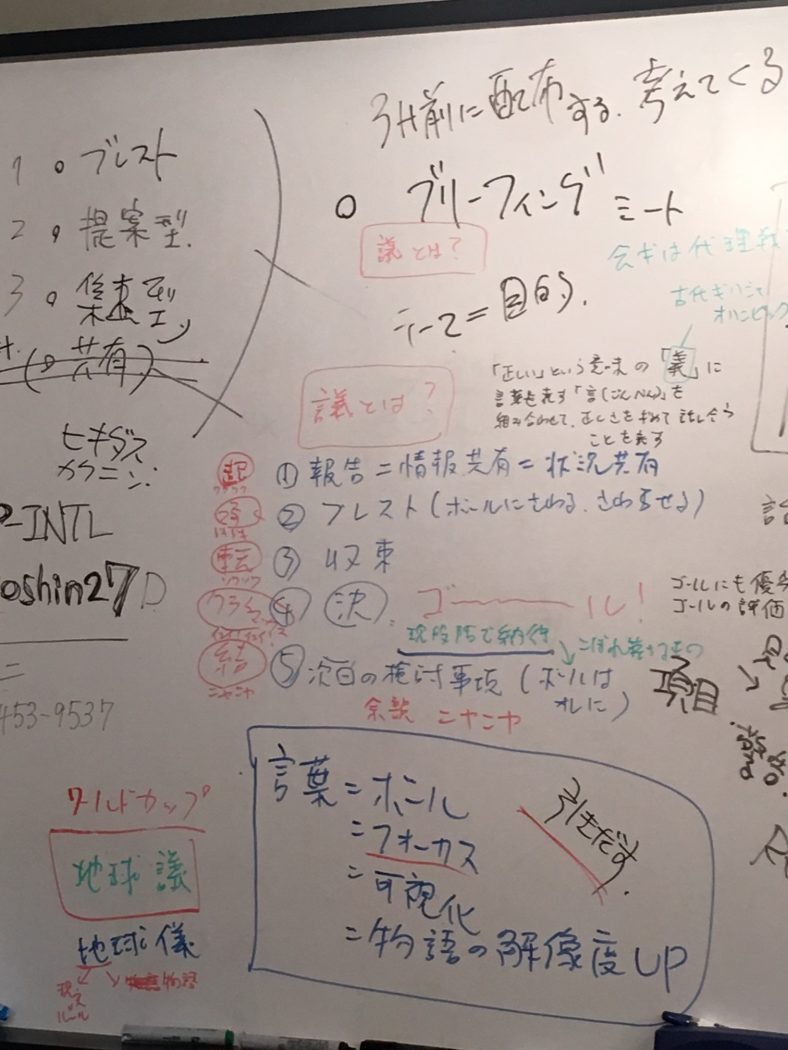 3日前に配布する。考えてくる
1 ○ ブレスト
2 ○ 提案型
3 ○
(○ 共有)
○ ブリーフィング ミート
議とは?
テーマ=目的
古代ギリシャ
オリンピック
議とは?
「正しい」という意味の「義」に
言葉を表す「言(ごんべん)」を
組み合わせて、正しさを求めて話し合う
ことを表す
ヒキダス
P-INTL
oshin27D
453-9537
起 ① 報告=情報共有=状況共有
承 ② ブレスト(ボールにさわる、さわらせる)
転 ③ 収束
クライマックス ④ 決 ゴーーール!
現段階で納得
こぼれ落ちたもの
結 ⑤ 次回の検討事項(ボールはオレに)
ニヤニヤ
余談 ニヤニヤ
ゴールにも優劣
ゴールの評価
項目
ワールドカップ
地球議
地球儀
ルール
物語
言葉=ボール
=フォーカス
=可視化
=物語の解像度UP
引きだす。